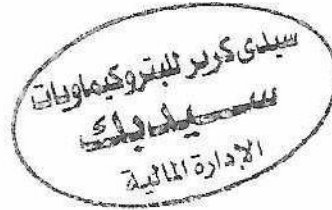 سيدى كرير للبتروكيماويات
سيدبك
الإدارة المالية